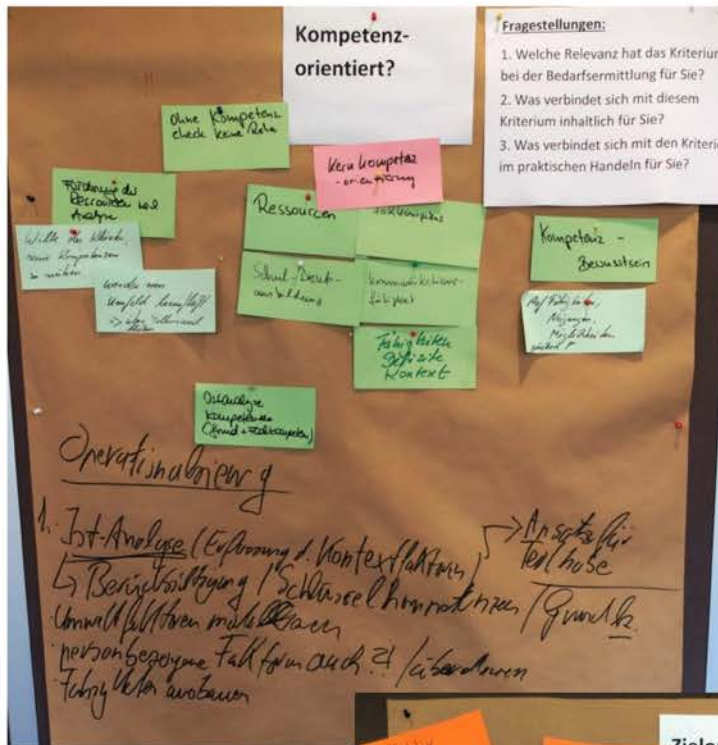 Kompetenz-
orientiert?
Fragestellungen:
1. Welche Relevanz hat das Kriterium
bei der Bedarfsermittlung für Sie?
2. Was verbindet sich mit diesem
Kriterium inhaltlich für Sie?
3. Was verbindet sich mit den Kriteri
im praktischen Handeln für Sie?
ohne Kompetenz
check keine Reha
Kernkompetenz
-orientierung
Förderung der
Ressourcen und
Analyse
Ressourcen
Kompetenz -
Bewusstsein
Wille des Klienten,
seine Kompetenzen
zu
werden vom
Umfeld beeinflusst
Schul-/Berufs-
ausbildung
Kommunikations-
fähigkeit
Auf Fähigkeiten,
Neigungen,
Möglichkeiten
Fähigkeiten
Defizite
Kontext
Istanalyse
Kompetenzen
(Grund + Fachkompetenz)
Operationalisierung
1. Ist-Analyse (Erfassung d. Kontextfaktoren)
→ Ansatz für
Teilhabe
↳ Berücksichtigung / Schlüsselkompetenzen / Grundk.
Umweltfaktoren
personbezogene Faktoren auch ?! /
Fähigkeiten ausbauen